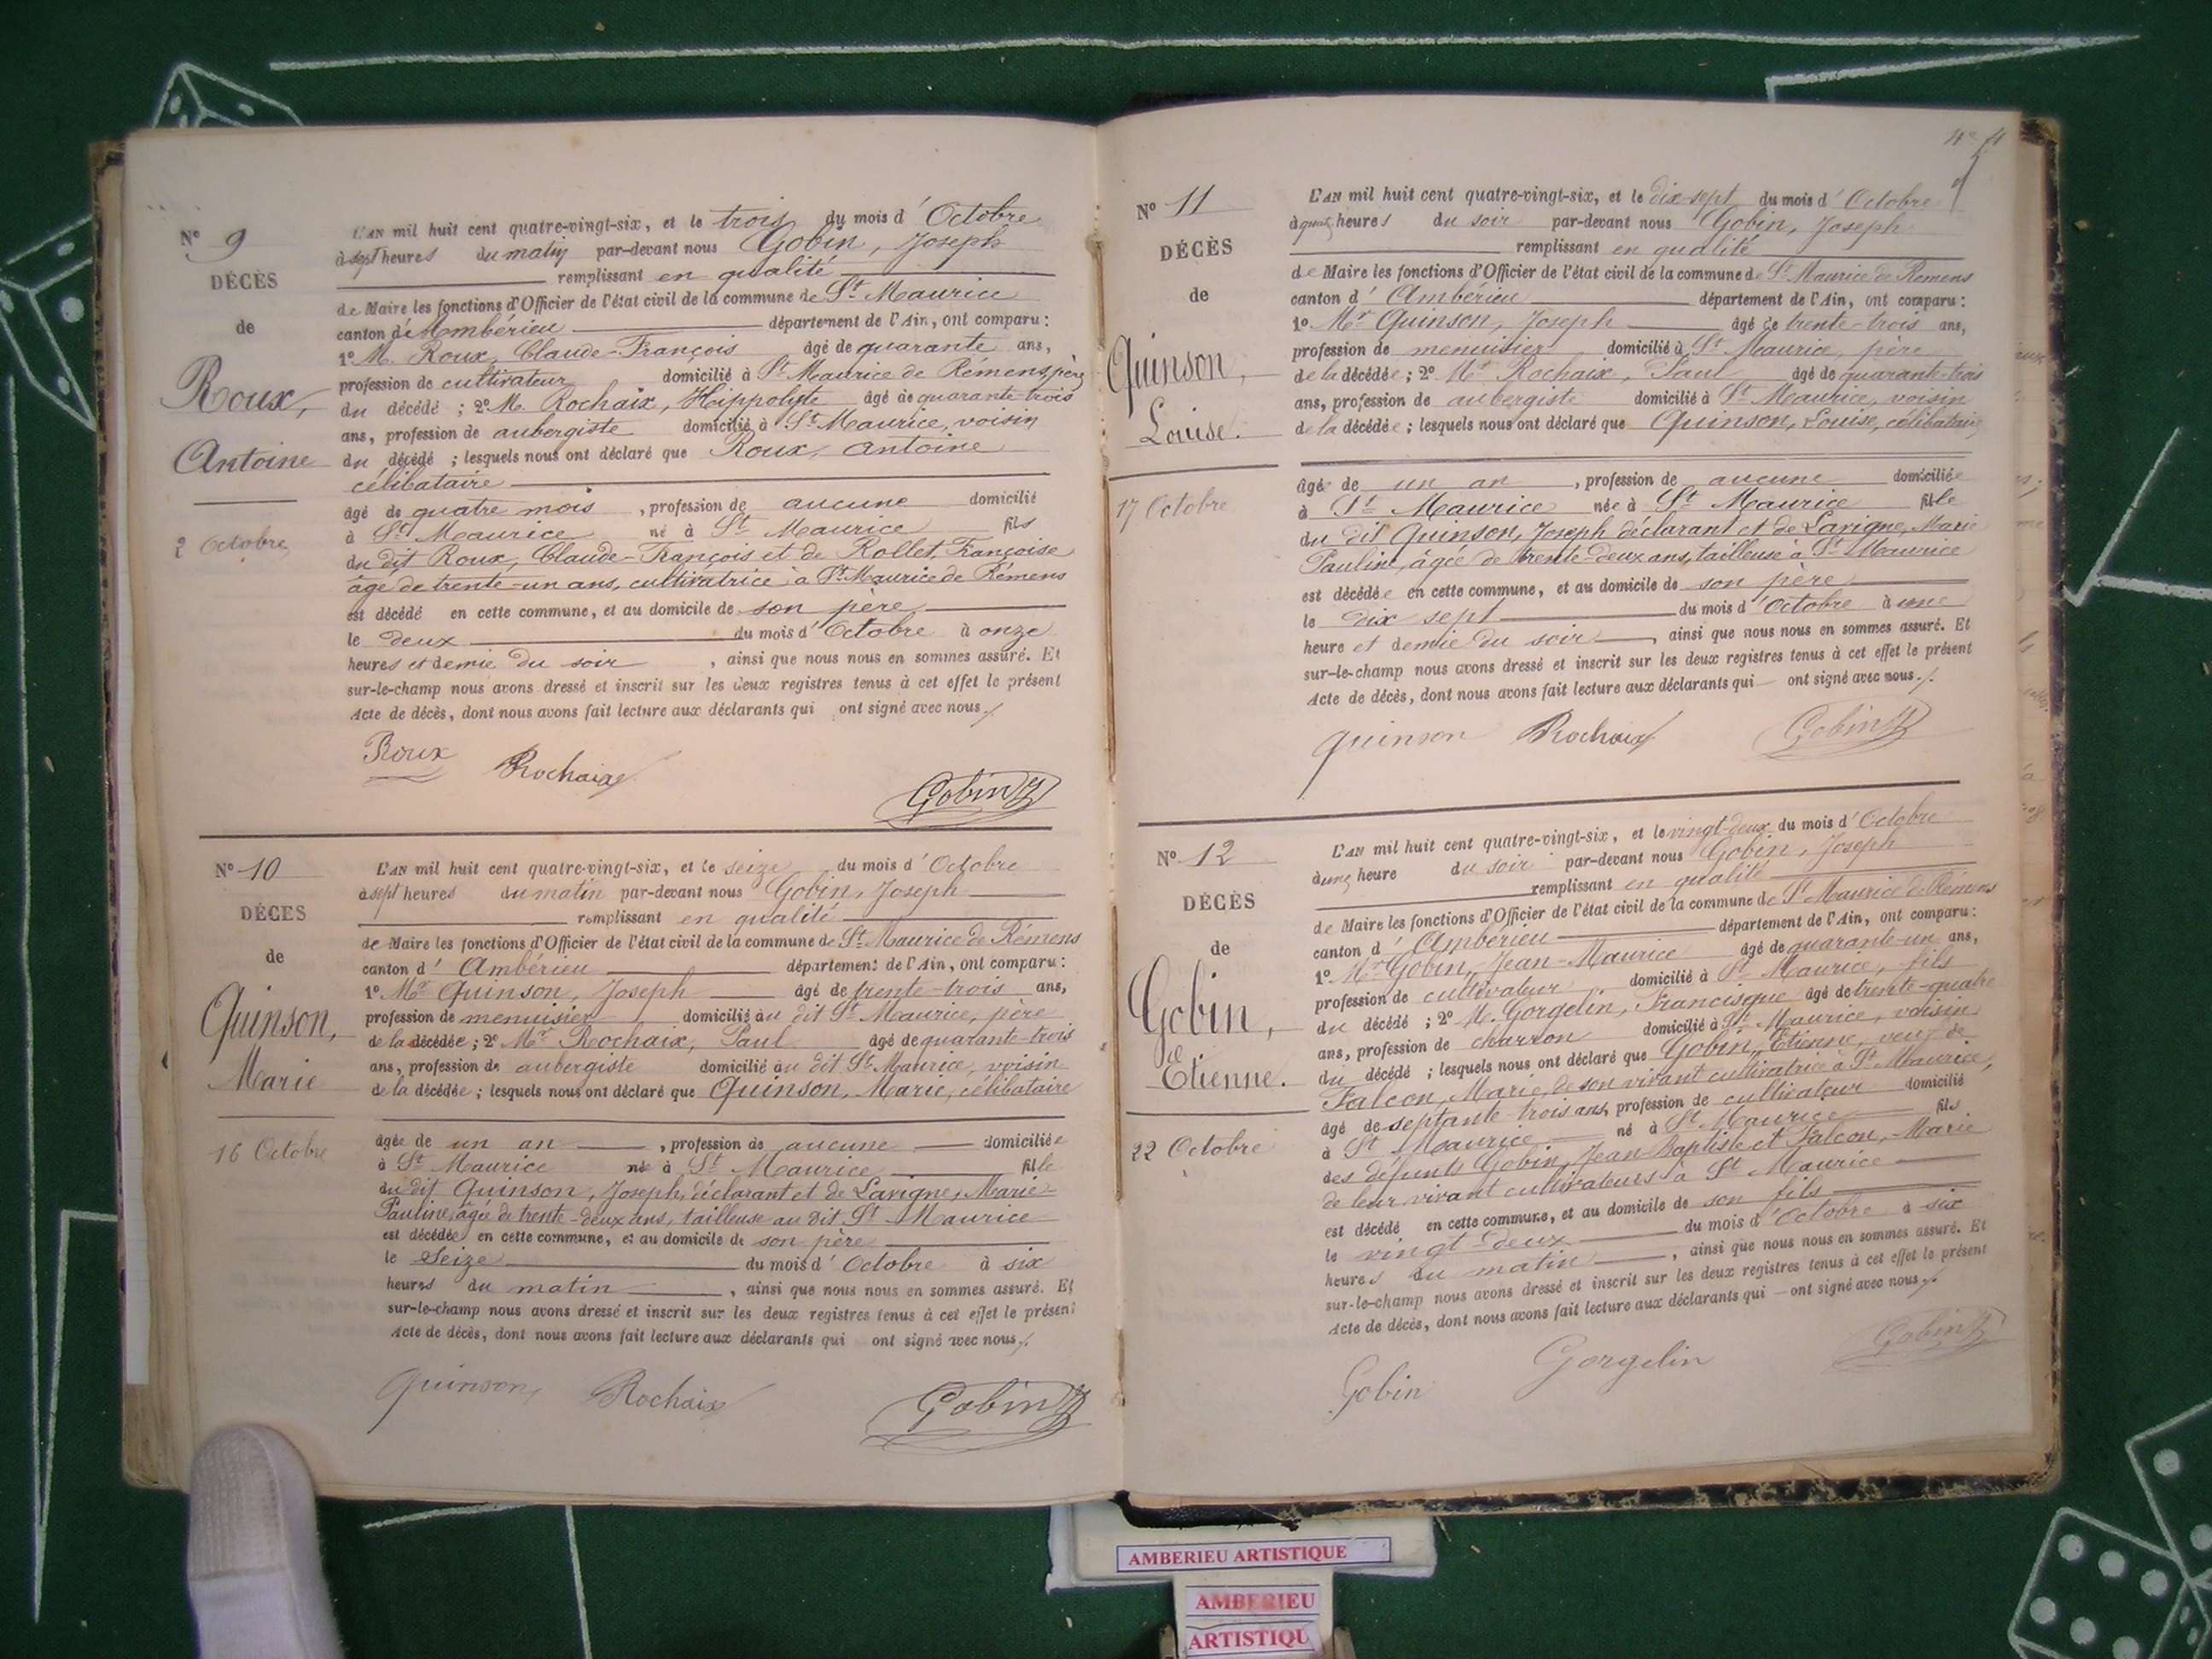 N° 9
DÉCÈS
de
Roux,
Antoine
2 Octobre
L'AN mil huit cent quatre-vingt-six, et le trois du mois d' Octobre
à sept heures du matin par-devant nous Gobin, Joseph
remplissant en qualité
de Maire les fonctions d'Officier de l'état civil de la commune de St Maurice
canton d'Ambérieu département de l'Ain, ont comparu :
1° M. Roux, Claude-François âgé de quarante ans,
profession de cultivateur domicilié à St Maurice de Rémens, père
du décédé ; 2° M. Rochaix, Hippolyte âgé de quarante-trois
ans, profession de aubergiste domicilié à St Maurice, voisin
du décédé ; lesquels nous ont déclaré que Roux, Antoine
célibataire
âgé de quatre mois, profession de aucune domicilié
à St Maurice né à St Maurice fils
du dit Roux, Claude-François et de Rollet, Françoise
âgé de trente-un ans, cultivatrice à St Maurice de Rémens
est décédé en cette commune, et au domicile de son père
le deux du mois d'Octobre à onze
heures et demie du soir, ainsi que nous nous en sommes assuré. Et
sur-le-champ nous avons dressé et inscrit sur les deux registres tenus à cet effet le présent
Acte de décès, dont nous avons fait lecture aux déclarants qui ont signé avec nous.
Roux Rochaix Gobin
N° 10
DÉCÈS
de
Quinson,
Marie
16 Octobre
L'AN mil huit cent quatre-vingt-six, et le seize du mois d' Octobre
à sept heures du matin par-devant nous Gobin, Joseph
remplissant en qualité
de Maire les fonctions d'Officier de l'état civil de la commune de St Maurice de Rémens
canton d' Ambérieu département de l'Ain, ont comparu :
1° Mr Quinson, Joseph âgé de trente-trois ans,
profession de menuisier domicilié au dit St Maurice, père
de la décédée ; 2° Mr Rochaix, Paul âgé de quarante-trois
ans, profession de aubergiste domicilié au dit St Maurice, voisin
de la décédée ; lesquels nous ont déclaré que Quinson, Marie, célibataire
âgée de un an, profession de aucune domiciliée
à St Maurice née à St Maurice fille
du dit Quinson, Joseph, déclarant et de Lavigne, Marie-
Pauline, âgée de trente-deux ans, tailleuse au dit St Maurice
est décédée en cette commune, et au domicile de son père
le Seize du mois d' Octobre à six
heures du matin, ainsi que nous nous en sommes assuré. Et
sur-le-champ nous avons dressé et inscrit sur les deux registres tenus à cet effet le présent
Acte de décès, dont nous avons fait lecture aux déclarants qui ont signé avec nous.
Quinson Rochaix Gobin
N° 11
DÉCÈS
de
Quinson,
Louise.
17 Octobre
L'AN mil huit cent quatre-vingt-six, et le dix-sept du mois d' Octobre
heures du soir par-devant nous Gobin, Joseph
remplissant en qualité
de Maire les fonctions d'Officier de l'état civil de la commune de St Maurice de Remens
canton d' Ambérieu département de l'Ain, ont comparu :
1° Mr Quinson, Joseph âgé de trente-trois ans,
profession de menuisier domicilié à St Maurice, père
de la décédée ; 2° Mr Rochaix, Paul âgé de quarante-trois
ans, profession de aubergiste domicilié à St Maurice, voisin
de la décédée ; lesquels nous ont déclaré que Quinson, Louise, célibataire
âgé de un an, profession de aucune domiciliée
à St Maurice née à St Maurice fille
du dit Quinson, Joseph déclarant et de Lavigne, Marie
Pauline, âgée de trente-deux ans, tailleuse à St Maurice
est décédée en cette commune, et au domicile de son père
le dix sept du mois d'Octobre à une
heure et demie du soir, ainsi que nous nous en sommes assuré. Et
sur-le-champ nous avons dressé et inscrit sur les deux registres tenus à cet effet le présent
Acte de décès, dont nous avons fait lecture aux déclarants qui ont signé avec nous.
Quinson Rochaix Gobin
N° 12
DÉCÈS
de
Gobin,
Etienne.
22 Octobre
L'AN mil huit cent quatre-vingt-six, et le vingt-deux du mois d' Octobre
à une heure du soir par-devant nous Gobin, Joseph
remplissant en qualité
de Maire les fonctions d'Officier de l'état civil de la commune de St Maurice de Rémens
canton d' Ambérieu département de l'Ain, ont comparu :
1° Mr Gobin, Jean-Maurice âgé de quarante-un ans,
profession de cultivateur domicilié à St Maurice, fils
du décédé ; 2° M. Gorgelin, Francisque âgé de trente-quatre
ans, profession de charron domicilié à St Maurice, voisin
du décédé ; lesquels nous ont déclaré que Gobin, Etienne, veuf de
Falcon, Marie, de son vivant cultivatrice à St Maurice,
âgé de septante-trois ans, profession de cultivateur domicilié
à St Maurice né à St Maurice fils
des défunts Gobin, Jean-Baptiste et Falcon, Marie
de leur vivant cultivateurs à St Maurice
est décédé en cette commune, et au domicile de son fils
le vingt-deux du mois d'Octobre à six
heures du matin, ainsi que nous nous en sommes assuré. Et
sur-le-champ nous avons dressé et inscrit sur les deux registres tenus à cet effet le présent
Acte de décès, dont nous avons fait lecture aux déclarants qui ont signé avec nous.
Gobin Gorgelin Gobin
AMBERIEU ARTISTIQUE
AMBERIEU
ARTISTIQU